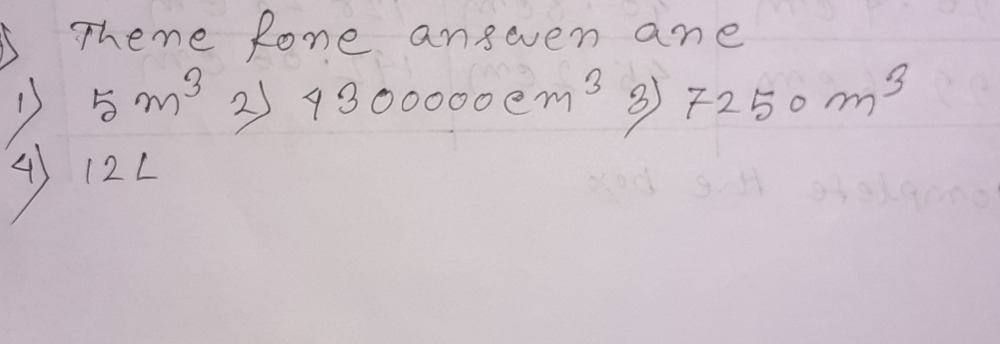 There fore answer are
1) 5 m³ 2) 4300000 cm³ 3) 7250 m³
4) 12 L